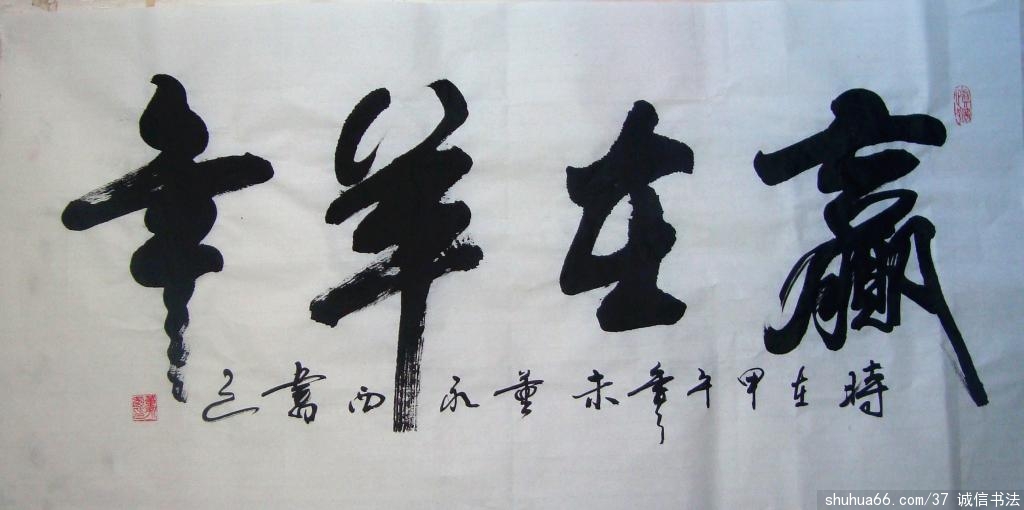 贏在羊年
時在甲午年末董永西書之
shuhua66.com/37 诚信书法